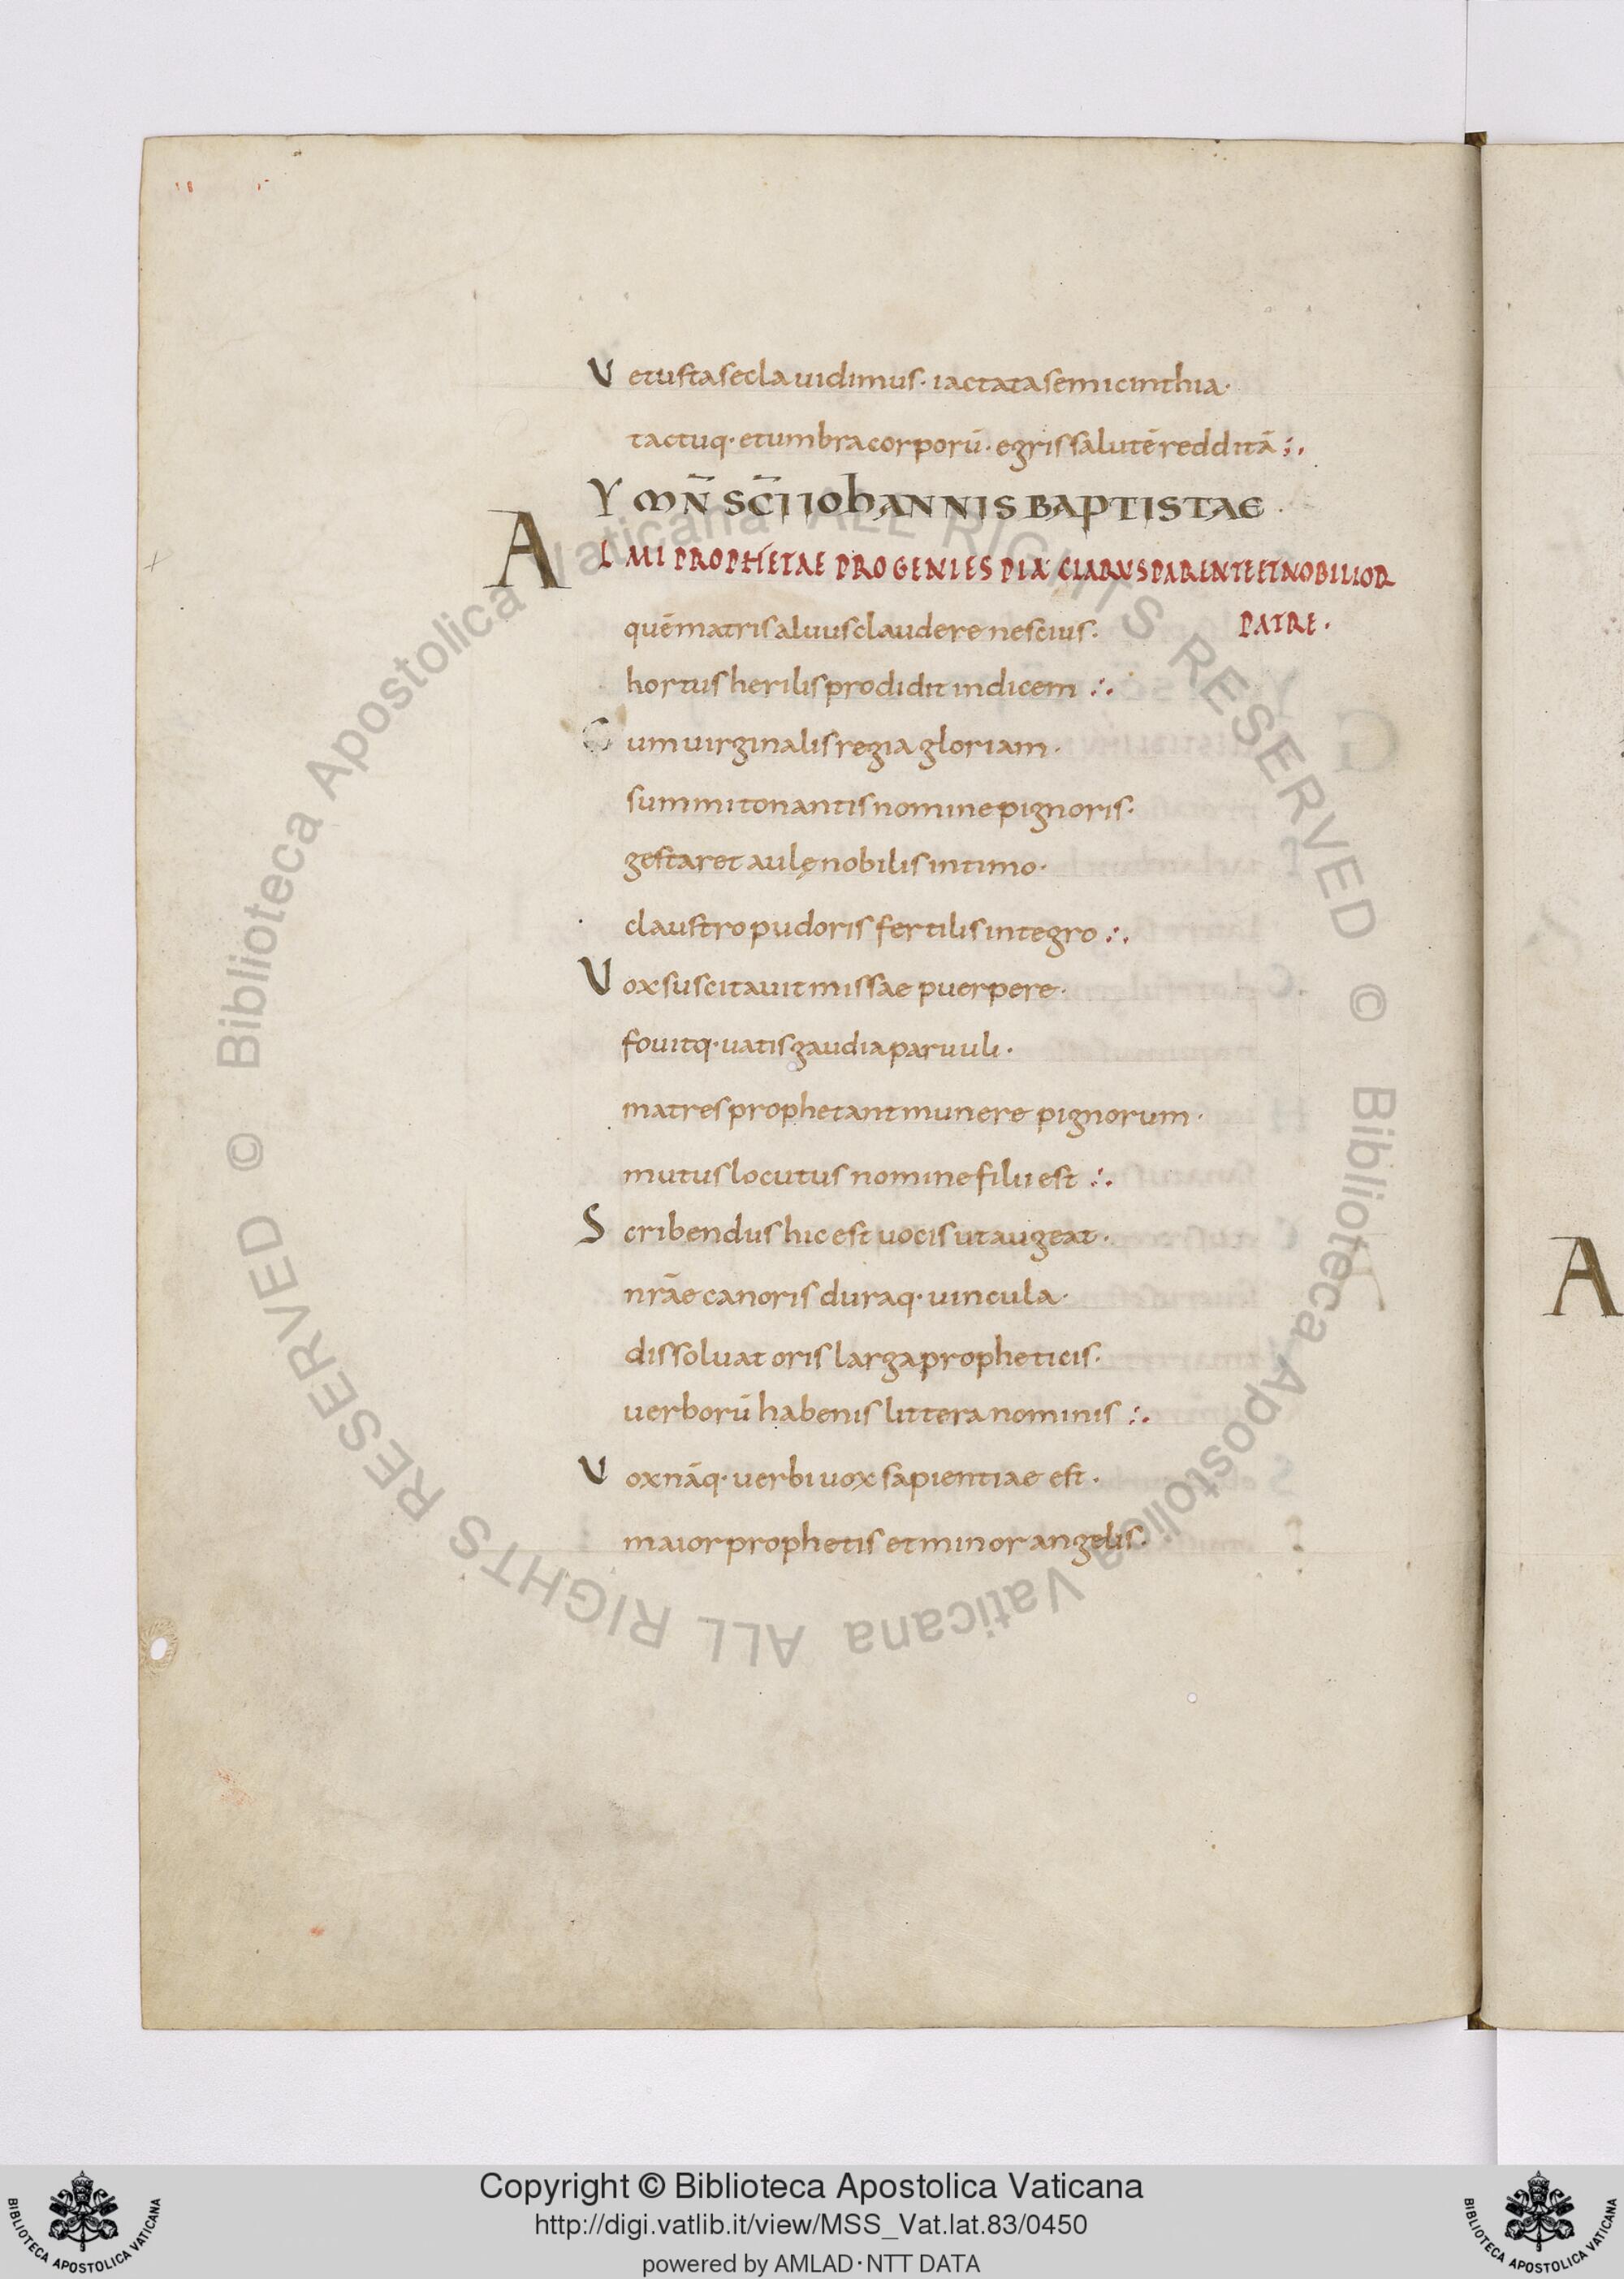 Vetusta secla uidimus · iactata semicinthia ·
tactuq· et umbra corporū · egris salutē redditā :·
YMN̄ SC̄I IOhANNIS BAPTISTAE ·
ALMI PROPHETAE PROGENIES PIA CLARUS PARENTE ET NOBILIOR
PATRE ·
quē matris aluus claudere nescius ·
hortus herilis prodidit indicem :·
Cum uirginalis regia gloriam ·
summi tonantis nomine pignoris ·
gestaret aulę nobilis intimo ·
claustro pudoris fertilis integro :·
Vox suscitauit missae puerpere ·
fouitq· uatis gaudia paruuli ·
matres prophetant munere pignorum ·
mutus locutus nomine filii est :·
Scribendus hic est uocis ut augeat ·
nr̄ae canoris duraq· uincula ·
dissoluat oris larga propheticis ·
uerborū habenis littera nominis :·
Vox nāq· uerbi uox sapientiae est ·
maior prophetis et minor angelis ·
A
© Biblioteca Apostolica Vaticana ALL RIGHTS RESERVED © Biblioteca Apostolica Vaticana ALL RIGHTS RESERVED
Copyright © Biblioteca Apostolica Vaticana
http://digi.vatlib.it/view/MSS_Vat.lat.83/0450
powered by AMLAD·NTT DATA
BIBLIOTECA APOSTOLICA VATICANA
BIBLIOTECA APOSTOLICA VATICANA